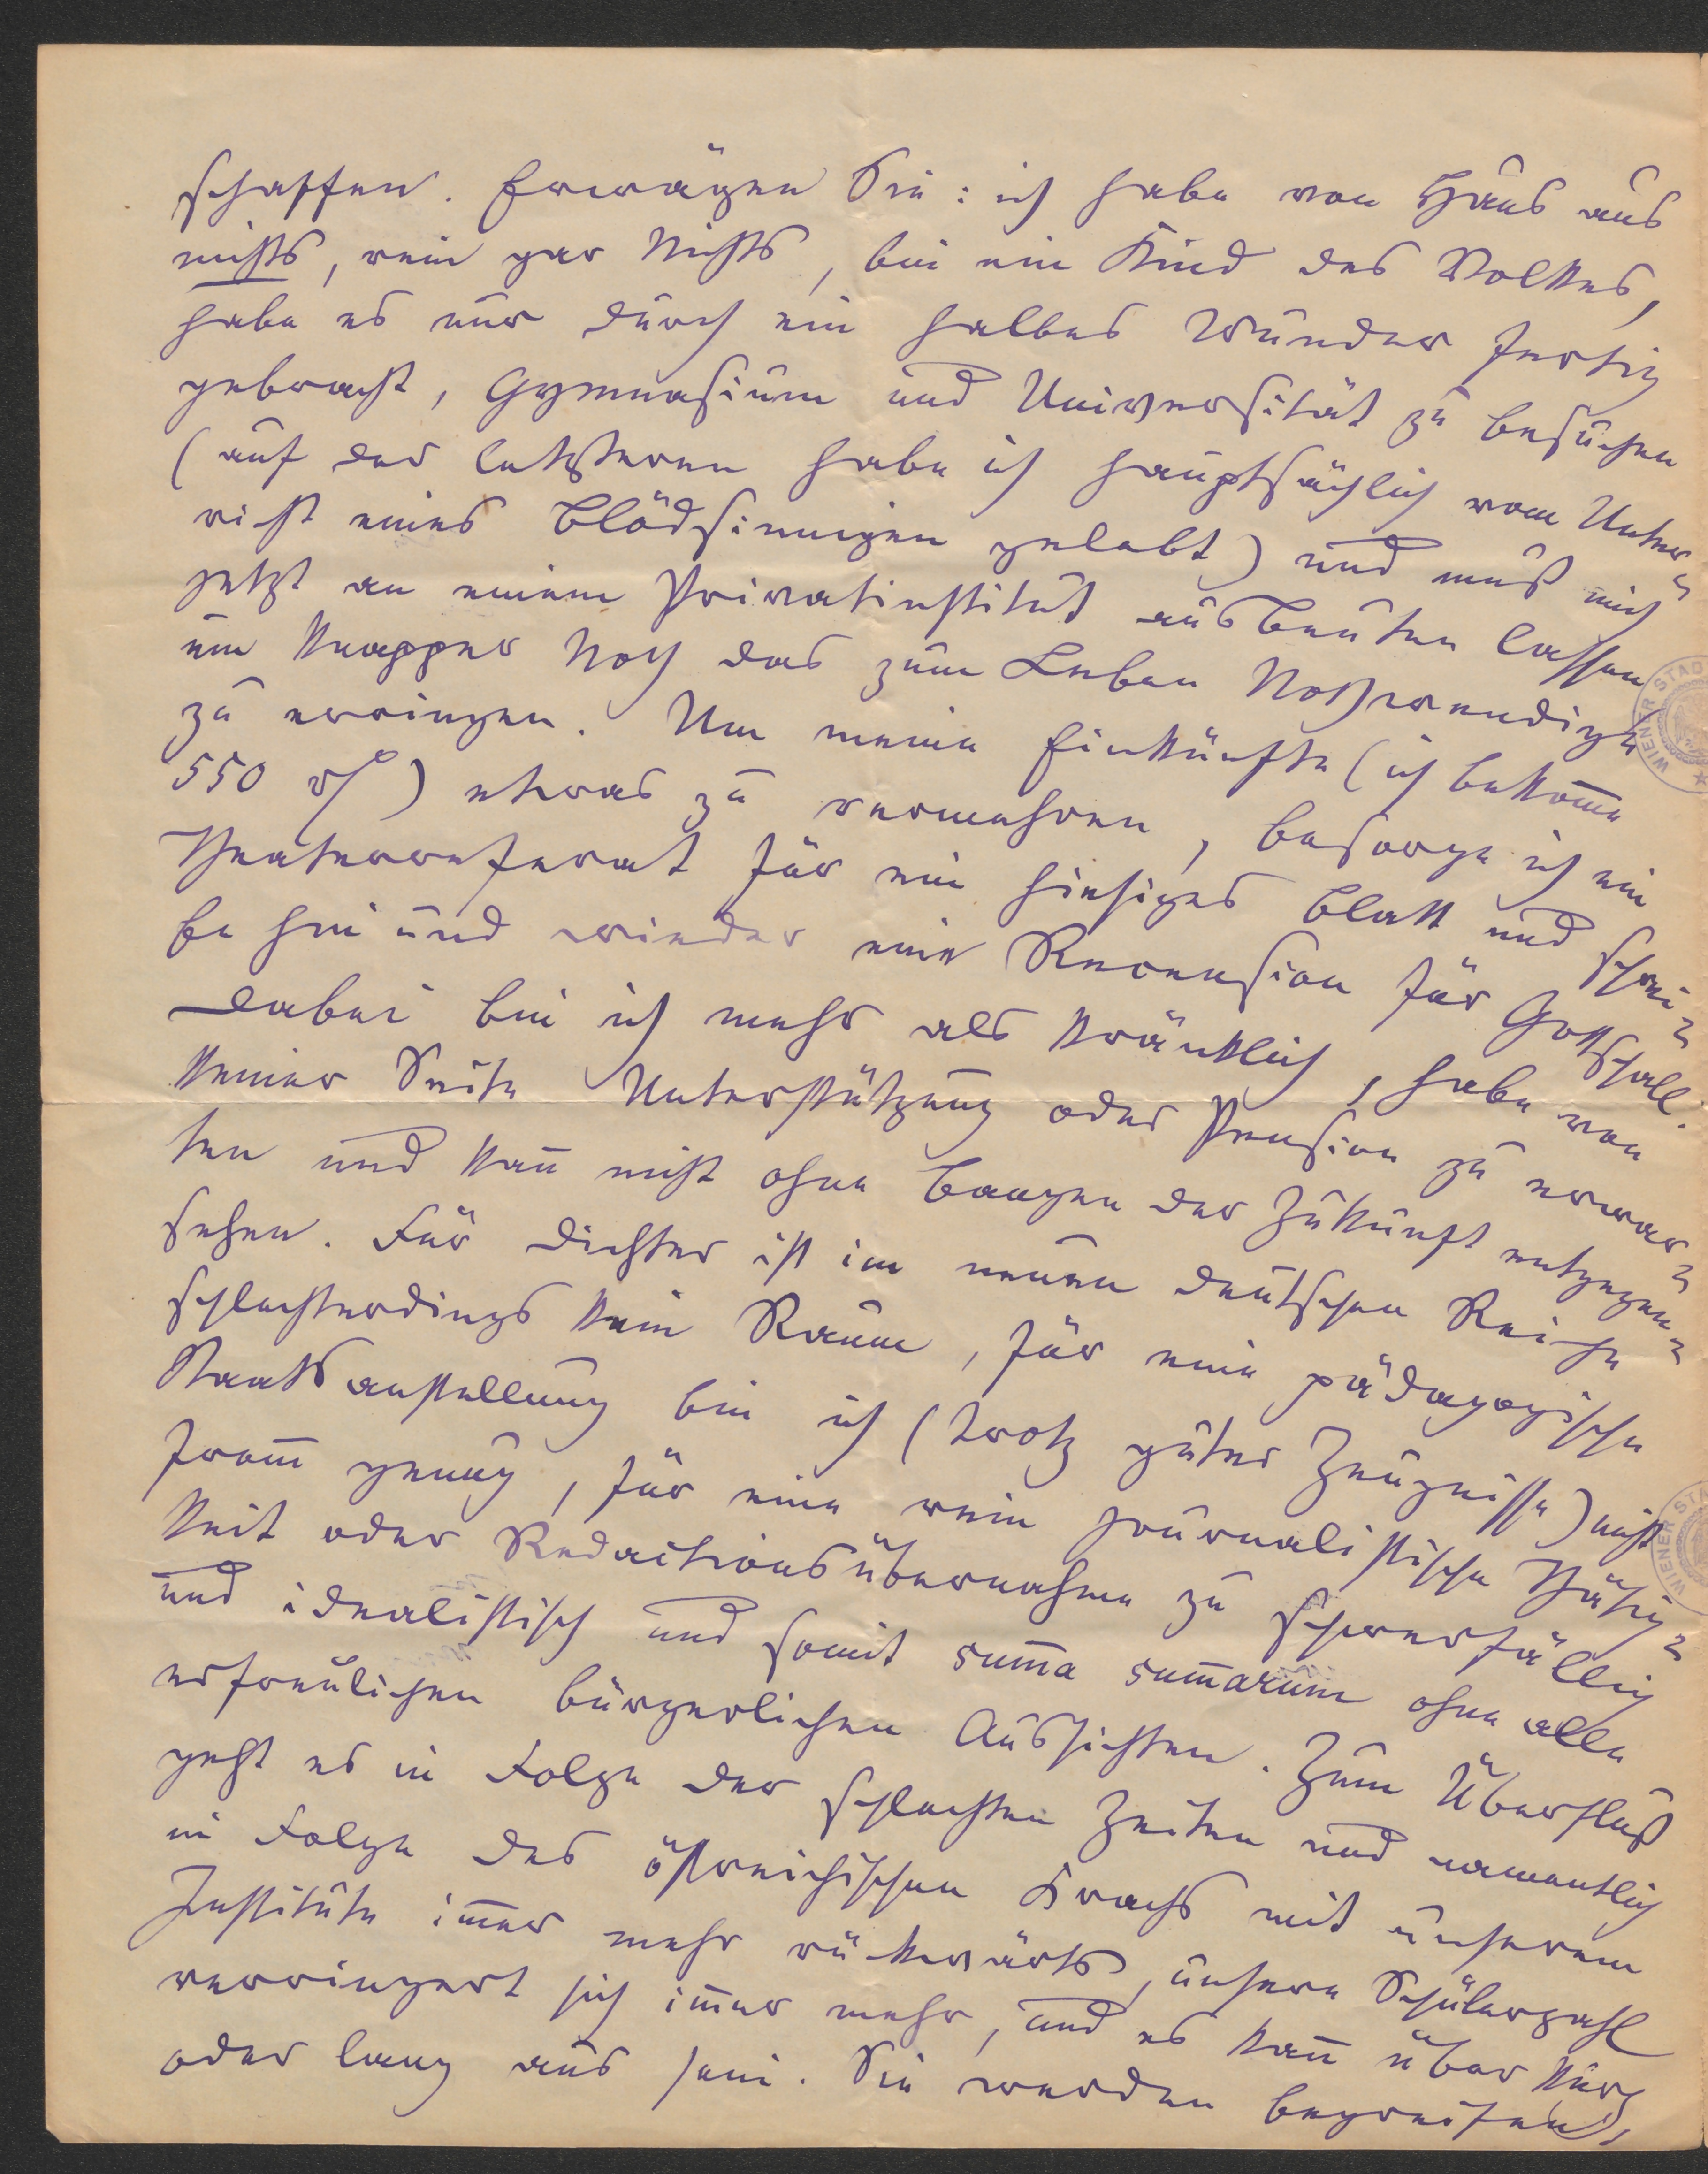 schaffen. Erwägen Sie: ich habe von Haus aus
nichts, rein gar Nichts, bin ein Kind des Volkes,
habe es nur durch ein halbes Wunder fertig
gebracht, Gymnasium und Universität zu besuchen
(auf der letzteren habe ich hauptsächlich vom Unter-
richt eines Blödsinnigen gelebt) und muß mich
jetzt an einem Privatinstitut ausbeuten lassen
um knapper Noth das zum Leben Nothwendige
zu erringen. Um meine Einkünfte (ich bekom̅e
550 rℓ) etwas zu vermehren, besorge ich ein
Theaterreferat für ein hiesiges Blatt und schrei-
be hin und wieder eine Recension für Gottschall.
Dabei bin ich mehr als kränklich, habe von
keiner Seite Unterstützung oder Pension zu erwar-
ten und kan̅ nicht ohne Bangen der Zukunft entgegen-
sehen. Für Dichter ist im neuen deutschen Reiche
schlechterdings kein Raum, für eine pädagogische
Staatsanstellung bin ich (trotz guter Zeugnisse) nicht
from̅ genug, für eine rein journalistische Thätig-
keit oder Redactionsübernahme zu schwerfällig
und idealistisch und somit sum̅a sum̅arum ohne alle
erfreulichen bürgerlichen Aussichten. Zum Überfluß
geht es in Folge der schlechten Zeiten und namentlich
in Folge des östreichischen Krachs mit unserem
Institute im̅er mehr rückwärts, unsere Schülerzahl
verringert sich im̅er mehr, und es kan̅ über kurz
oder lang aus sein. Sie werden begreifen,
WIENER STAD
WIENER STA